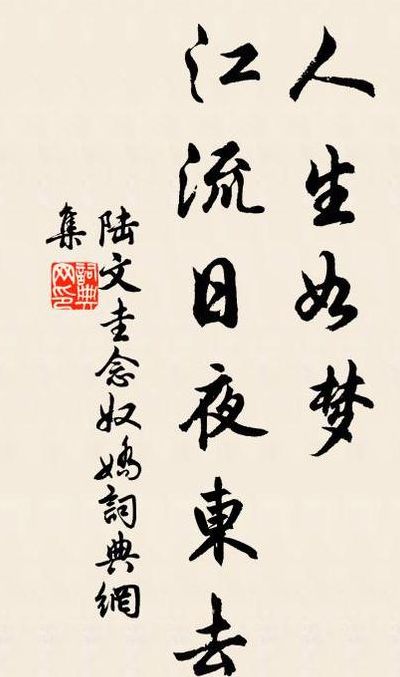 人生如梦
江流日夜東去
陆文圭念奴嬌詞典網
集
詞典
网印